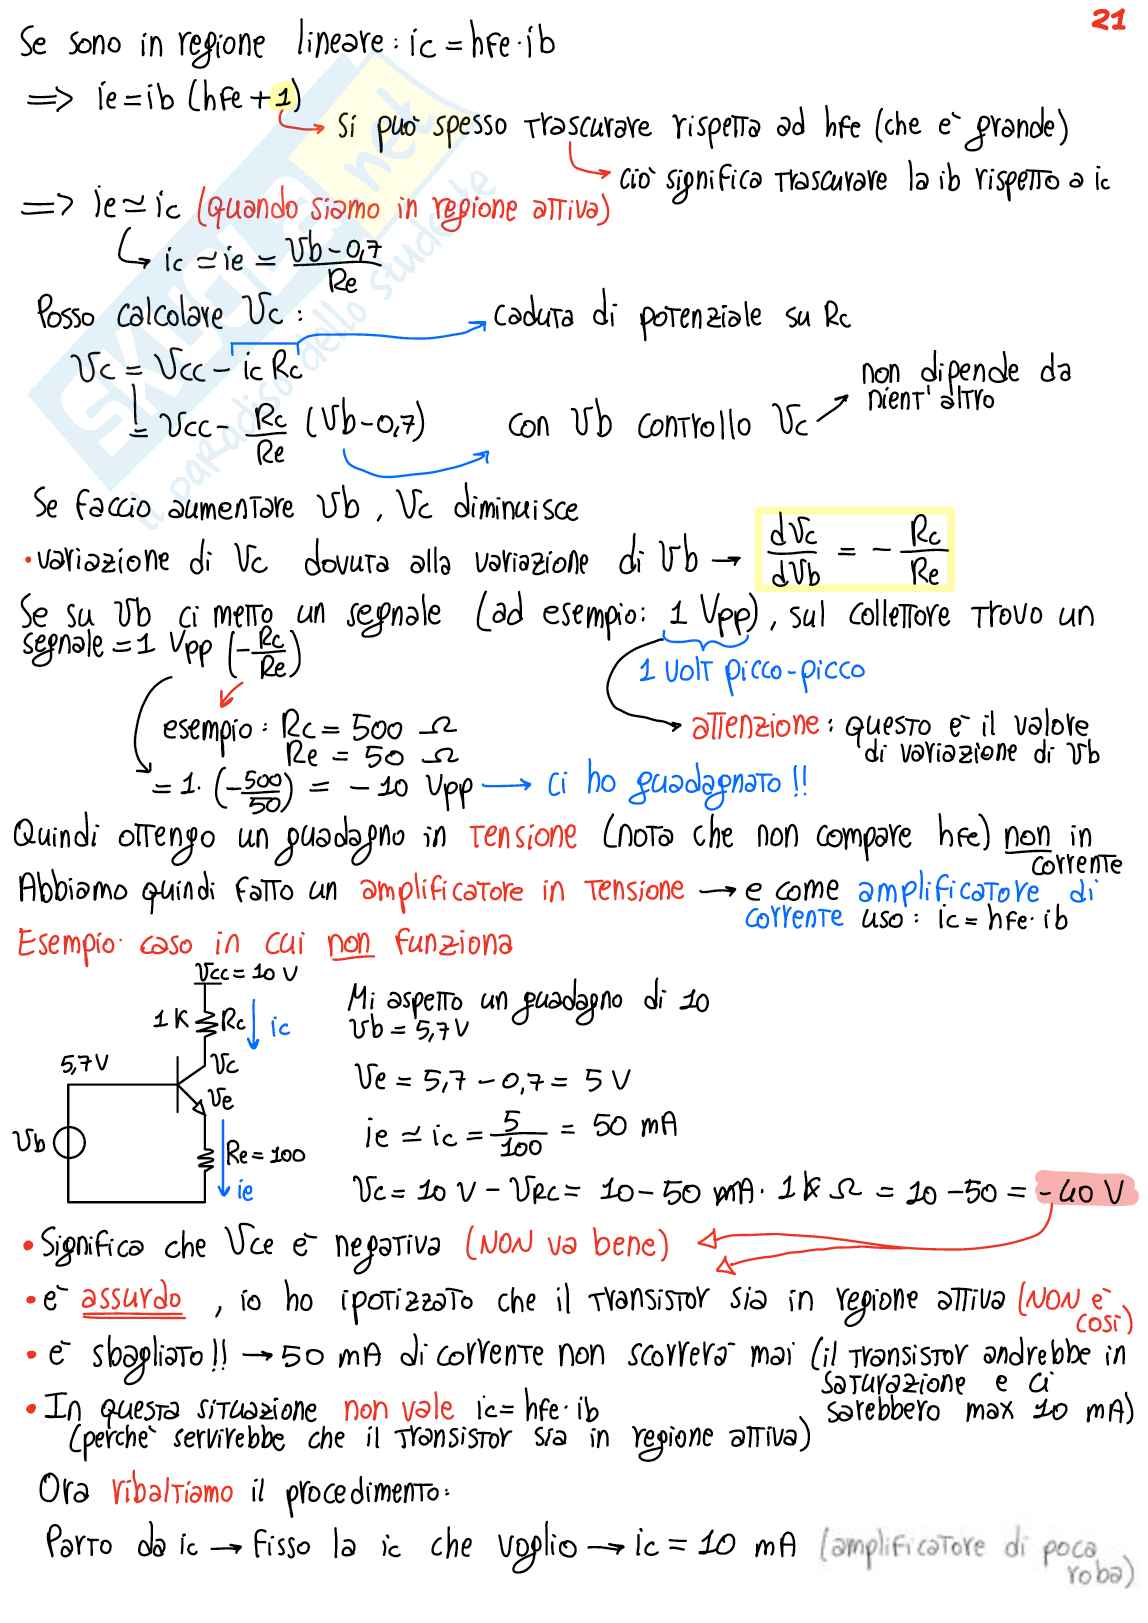 21
Se sono in regione lineare: ic = hfe·ib
⟹ ie = ib (hfe + 1)
si può spesso trascurare rispetta ad hfe (che è grande)
ciò significa trascurare la ib rispetto a ic
⟹ ie ≃ ic (quando siamo in regione attiva)
ic ≃ ie ≃ Vb - 0,7 / Re
Posso calcolare Vc:
caduta di potenziale su Rc
Vc = Vcc - ic Rc
non dipende da
nient'altro
= Vcc - Rc/Re (Vb - 0,7)
con Vb controllo Vc
Se faccio aumentare Vb, Vc diminuisce
• variazione di Vc dovuta alla variazione di Vb → dVc/dVb = - Rc/Re
Se su Vb ci metto un segnale (ad esempio: 1 Vpp), sul collettore trovo un
segnale = 1 Vpp (-Rc/Re)
1 Volt picco-picco
esempio: Rc = 500 Ω
Re = 50 Ω
attenzione: questo è il valore
di variazione di Vb
= 1· (-500/50) = - 10 Vpp → ci ho guadagnato!!
Quindi ottengo un guadagno in tensione (nota che non compare hfe) non in
corrente
Abbiamo quindi fatto un amplificatore in tensione → e come amplificatore di
corrente uso: ic = hfe·ib
Esempio: caso in cui non funziona
Vcc = 10 V
1K Rc ic
5,7V
Vc
Ve
Vb
Re = 100
ie
Mi aspetto un guadagno di 10
Vb = 5,7 V
Ve = 5,7 - 0,7 = 5 V
ie ≃ ic = 5/100 = 50 mA
Vc = 10 V - VRc = 10 - 50 mA · 1k Ω = 10 - 50 = - 40 V
• Significa che Vce è negativa (NON va bene)
• è assurdo, io ho ipotizzato che il transistor sia in regione attiva (NON è
così)
• è sbagliato!! → 50 mA di corrente non scorrerà mai (il transistor andrebbe in
saturazione e ci
sarebbero max 10 mA)
• In questa situazione non vale ic = hfe·ib
(perchè servirebbe che il transistor sia in regione attiva)
Ora ribaltiamo il procedimento:
Parto da ic → fisso la ic che voglio → ic = 10 mA (amplificatore di poca
roba)
skuola.net
il paradiso dello studente